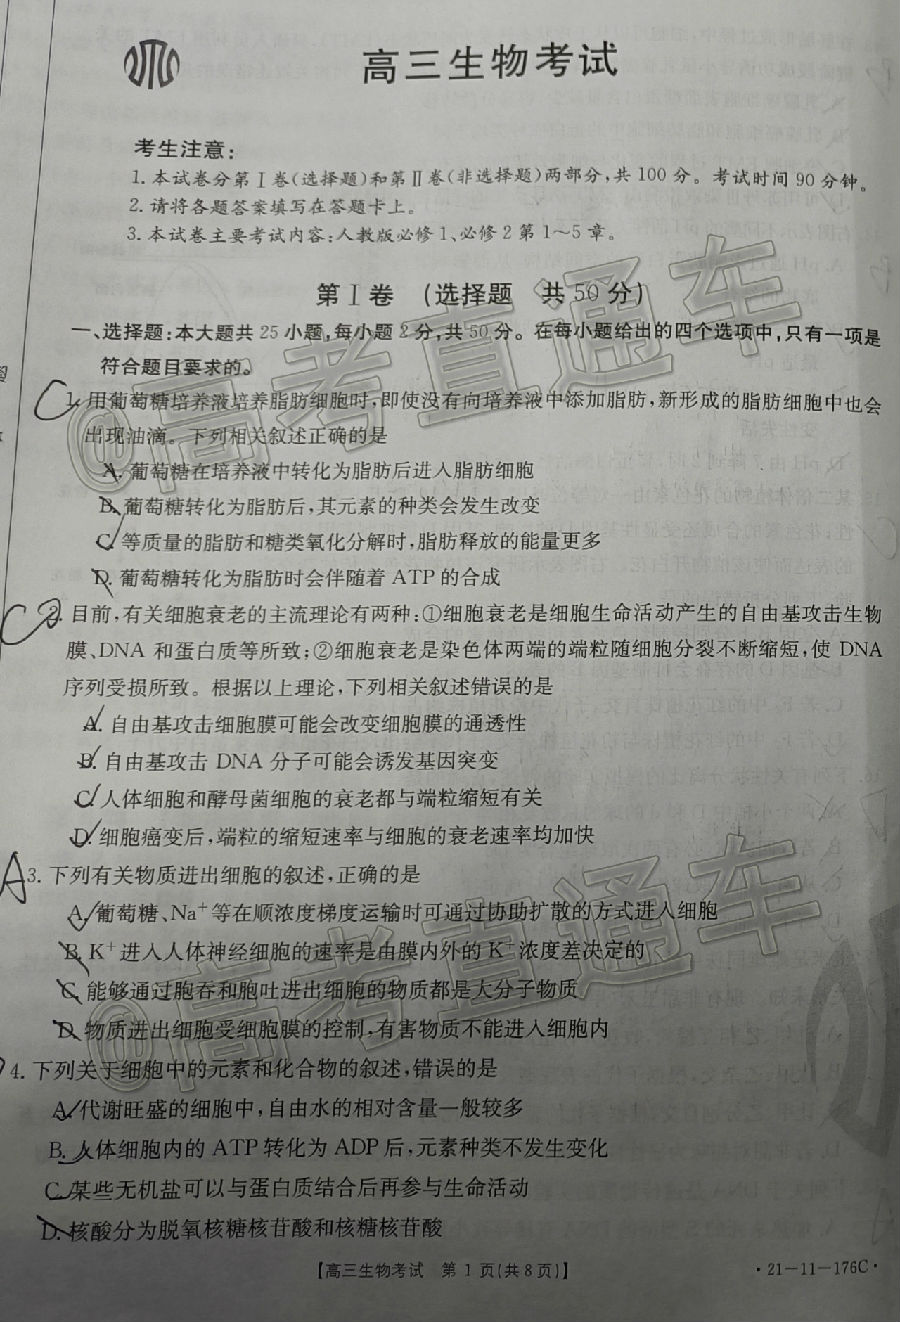 高三生物考试
考生注意:
1.本试卷分第Ⅰ卷(选择题)和第Ⅱ卷(非选择题)两部分,共100分。考试时间90分钟。
2.请将各题答案填写在答题卡上。
3.本试卷主要考试内容:人教版必修1、必修2第1~5章。
第Ⅰ卷 (选择题 共50分)
一、选择题:本大题共25小题,每小题2分,共50分。在每小题给出的四个选项中,只有一项是
符合题目要求的。
C 1.用葡萄糖培养液培养脂肪细胞时,即使没有向培养液中添加脂肪,新形成的脂肪细胞中也会
出现油滴。下列相关叙述正确的是
A.葡萄糖在培养液中转化为脂肪后进入脂肪细胞
B.葡萄糖转化为脂肪后,其元素的种类会发生改变
C.等质量的脂肪和糖类氧化分解时,脂肪释放的能量更多
D.葡萄糖转化为脂肪时会伴随着ATP的合成
C 2.目前,有关细胞衰老的主流理论有两种:①细胞衰老是细胞生命活动产生的自由基攻击生物
膜、DNA和蛋白质等所致;②细胞衰老是染色体两端的端粒随细胞分裂不断缩短,使DNA
序列受损所致。根据以上理论,下列相关叙述错误的是
A.自由基攻击细胞膜可能会改变细胞膜的通透性
B.自由基攻击DNA分子可能会诱发基因突变
C.人体细胞和酵母菌细胞的衰老都与端粒缩短有关
D.细胞癌变后,端粒的缩短速率与细胞的衰老速率均加快
A 3.下列有关物质进出细胞的叙述,正确的是
A.葡萄糖、Na⁺等在顺浓度梯度运输时可通过协助扩散的方式进入细胞
B.K⁺进入人体神经细胞的速率是由膜内外的K⁺浓度差决定的
C.能够通过胞吞和胞吐进出细胞的物质都是大分子物质
D.物质进出细胞受细胞膜的控制,有害物质不能进入细胞内
4.下列关于细胞中的元素和化合物的叙述,错误的是
A.代谢旺盛的细胞中,自由水的相对含量一般较多
B.人体细胞内的ATP转化为ADP后,元素种类不发生变化
C.某些无机盐可以与蛋白质结合后再参与生命活动
D.核酸分为脱氧核糖核苷酸和核糖核苷酸
【高三生物考试 第1页(共8页)】
·21-11-176C·
@高考直通车
@高考直通车